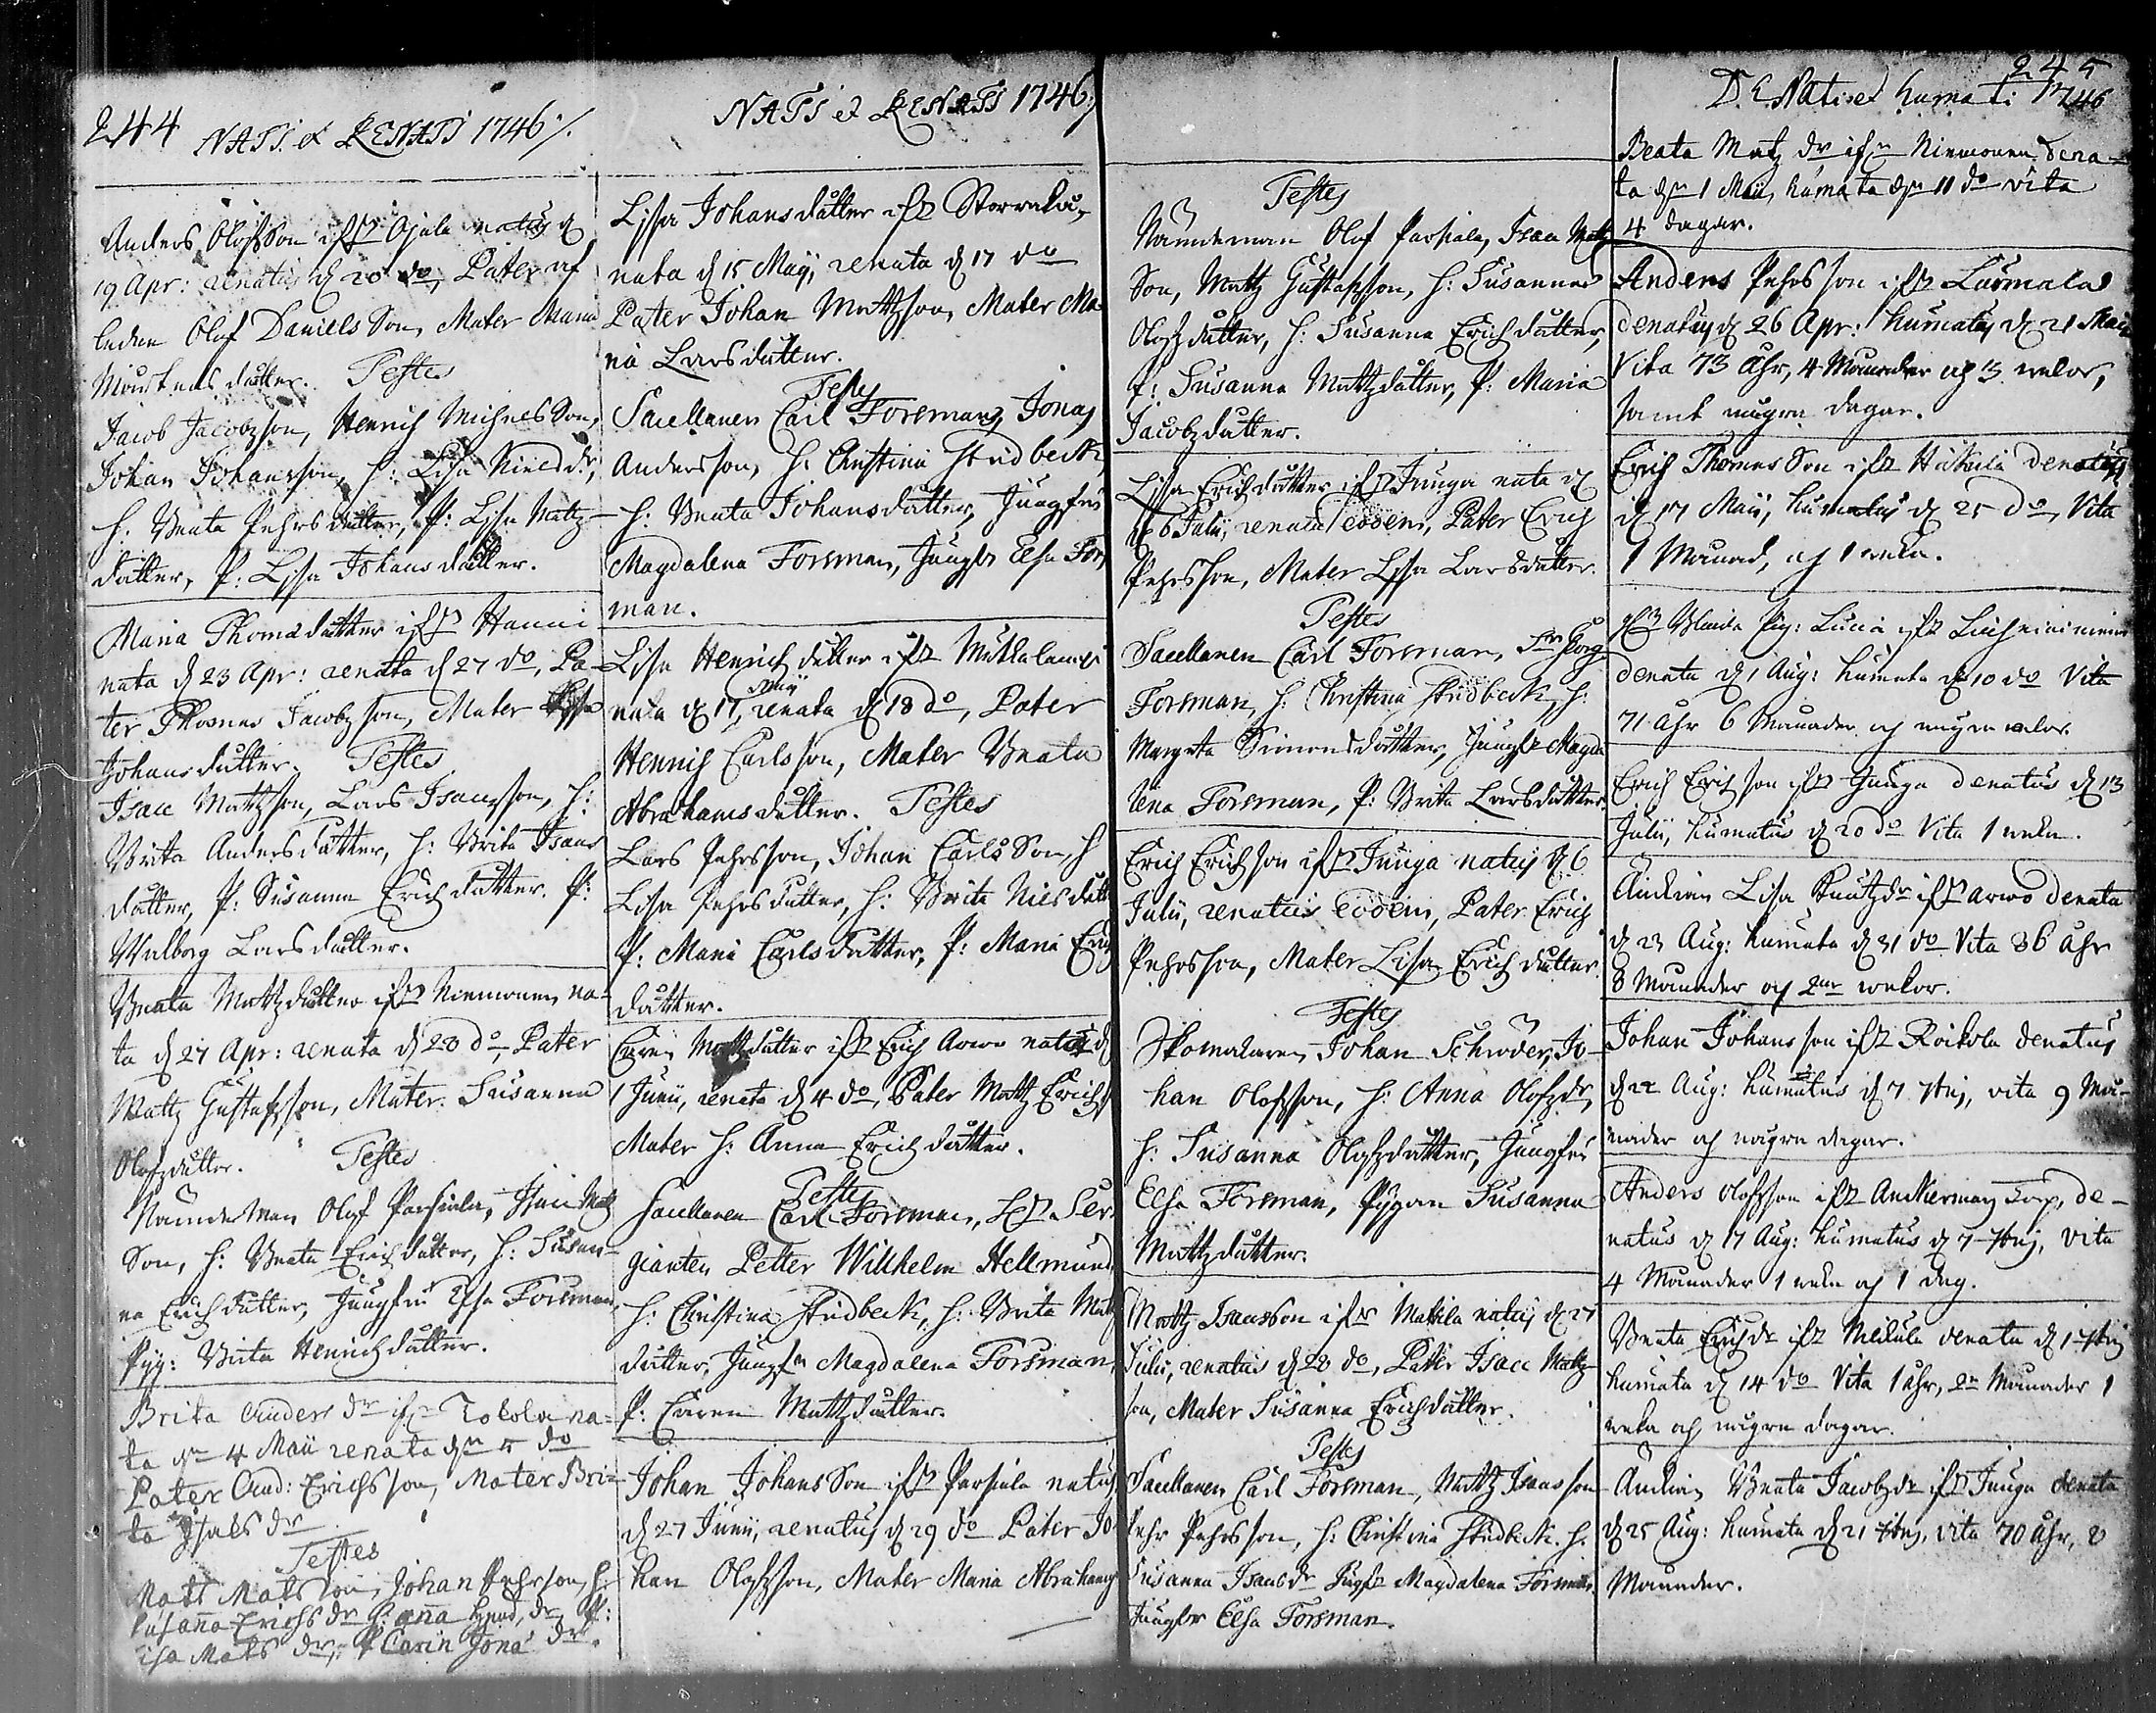 244 NATI & RENATI 1746 ./.
Anders Olofsson ifrå Ojala natus d
19 Apr: renatus d 20 do, Pater af
leden Olof Daniels Son, Mater Maria
Mårtensdåtter. Testes
Jacob Jacobsson, Henrich Michels Son,
Johan Johansson, h: Lisa Niels dr,
h: Beata Pehrsdåtter, P: Lisa Matz-
dåtter, P: Lisa Johansdåtter.
Maria Thomædåtter ifrå Hanni
nata d 23 Apr: renata d 27 do, Pa-
ter Thomas Jacobsson, Mater Lisa
Johansdåtter. Testes
Isac Mattzson, Lars Isacsson, h:
Brita Andersdåtter, h: Brita Isacs
dåtter, P: Susanna Erichdåtter. P:
Walborg Larsdåtter.
Beata Mattzdåtter ifrå Niemonen, na-
ta d 27 Apr: renata d 28 do, Pater
Mattz Gustafsson, Mater. Susanna
Olofzdåtter. Testes
Nämdeman Olof Parsiala, Isac Matz
Son, h: Beata Erichdåtter, h: Susan-
na Erichdåtter, Jungfru Elsa Forsman,
Pyg: Brita Henrichdåtter.
Brita Anders dr ifrn Tokola na-
ta dn 4 Maii renata dn 5 do
Pater And: Erichsson, Mater Bri-
ta Isacs dr
Testes
Matts Mats son, Johan Pehrson, h:
Susanna Erichs dr h: anna dr P:
isa Mats dr, P Carin Jona dr.
NATI et RENATI 1746 ./.
Lissa Johansdåtter ifrå Storrala,
nata d 15 Maij, renata d 17 do
Pater Johan Mattzson, Mater Ma-
ria Larsdåtter.
Testes
Sacellanen Carl Forsman, Jonas
Andersson, h: Christina Stridbeck,
h: Beata Johansdåtter, Jungfru
Magdalena Forsman, Jungfr Elsa Fors
man.
Lisa Henrichdåtter ifrå Mutkalampi
nata d 17 Maij, renata d 18 do, Pater
Henrich Carlsson, Mater Beata
Abrahamsdåtter. Testes
Lars Pehrsson, Johan Carls Son, h
Lisa Pehrsdåtter, h: Brita Nielsdått
P: Maria Carlsdåtter, P: Maria Erich
dåtter.
Caren Mattzdåtter ifrå Erich Arwo nata d
1 Junii, renata d 4 do, Pater Mattz Erichs
Mater h: Anna Erichdåtter.
Testes
Sacellanen Carl Forsman, Ser-
gianten Petter Willhelm Hellmund
h: Christina Stridbeck, h: Brita Matz
dåtter, Jungfru Magdalena Forsman,
P: Caren Mattzdåtter.
Johan Johans Son ifrå Parsiala natus
d 27 Junii, renatus d 29 do Pater Jo-
han Olofsson, Mater Maria Abrahams
Testes
Nämndeman Olof Parsiala, Isac Matz
Son, Mattz Gustafsson, h: Susanna
Olofzdåtter, h: Susanna Erichdåtter,
P: Susanna Mattzdåtter, P: Maria
Jacobzdåtter.
Lisa Erichdåtter ifrå Junga nata d
6 Julii, renata eodem, Pater Erich
Pehrsson, Mater Lisa Larsdåtter.
Testes
Sacellanen Carl Forsman, Georg
Forsman, h: Christina Stridbeck, h:
Margeta Simonsdåtter, Jungfr Magda
lena Forsman, P: Brita Larsdåtter.
Erich Erichson ifrå Junga natus d 6
Julii, renatus eodem, Pater Erich
Pehrsson, Mater Lisa Erichdåtter.
Testes
Skomakaren Johan Schröder, Jo-
han Olofsson, h: Anna Olofzdr,
h: Susanna Olofzdåtter, Jungfru
Elsa Forsman, Pygan Susanna
Mattzdåtter.
Mattz Isacsson ifrå Mattila natus d 27
Julii, renatus d 28 do, Pater Isac Mattz-
son, Mater Susanna Erichdåtter.
Testes
Sacellanen Carl Forsman, Mattz Isacsson
Pehr Pehrsson, h: Christina Stridbeck. h:
Susanna Isacsdr Jugfr Magdalena Forsman,
Jungfr Elsa Forsman.
245
DENati et humati 1746
Beata Matz dr ifrn Niemonen dena-
ta dn 1 Maii, humata dn 11 do vita
4 dagar.
Anders Pehrsson ifrå Lusmala
denatus d 26 Apr: humatus d 21 Maii
Vita 73 åhr, 4 Månader och 3 wekor,
samt några dagar.
Erich Thomas Son ifrå Häkula denatus
d 17 Maii, humatus d 25 do, Vita
1 Månad, och 1 weka.
Blinda Pig: Lucia ifrå
denata d 1 Aug: humata d 10 do Vita
71 åhr 6 Månader och några wekor
Erich Erichson ifrå Junga denatus d 13
Julii, humatus d 20 do Vita 1 weka.
Änckian Lisa Knutzdr ifrå Arwo denata
d 23 Aug: humata d 31 do Vita 86 åhr
8 Månader och 2ne wekor.
Johan Johansson ifrå Roikola denatus
d 22 Aug: humatus d 7 7brij, vita 9 Må-
nader och några dagar.
Anders Olofsson ifrå Anckerman Torp, de-
natus d 17 Aug: humatus d 7 7brij, Vita
4 Månader 1 weka och 1 dag.
Beata Erichdr ifrå Meikula denata d 1 7brij
humata d 14 do Vita 1 åhr, 2n Månader 1
weka och några dagar.
Änckian Beata Jacobzdr ifrå Junga denata
d 25 Aug: humata d 21 7brij, vita 70 åhr, 8
Månader.